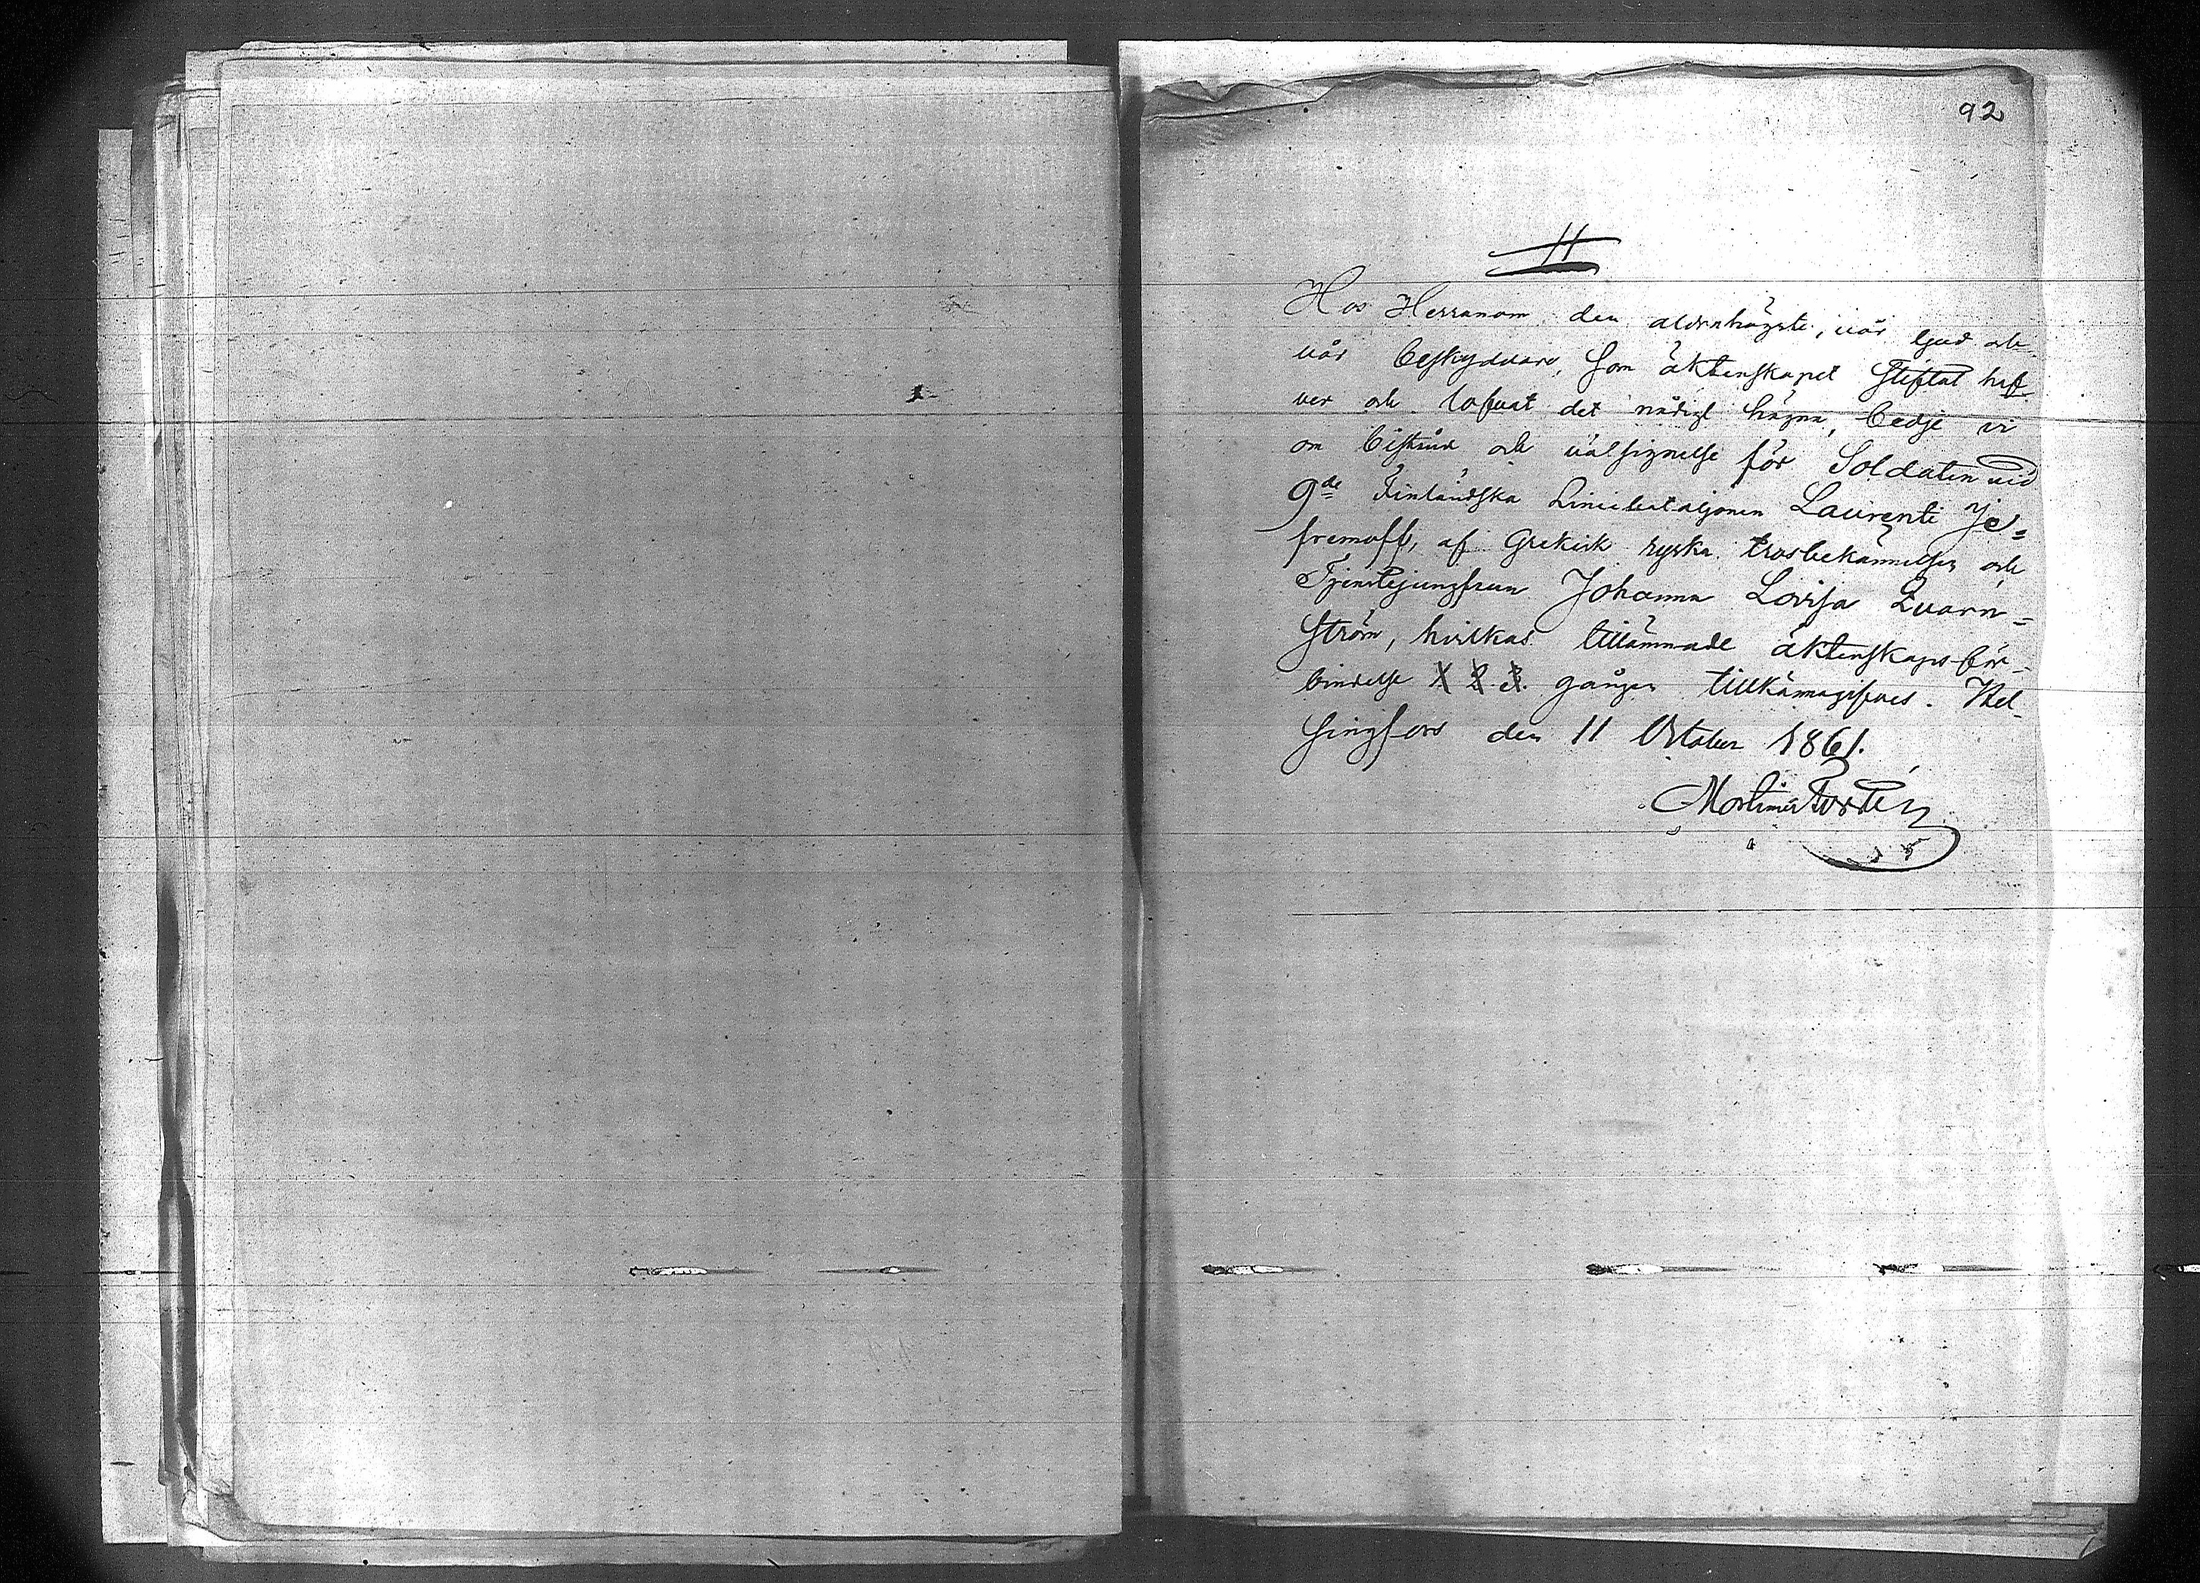 92
11
Hos Herranom den aldrahögste, vår Gud och
vår beskyddare, som äktenskapet stiftat haf-
ver och lofvat det nådigt hägna, bedje vi
om bistånd och välsignelse för Soldaten vid
9de Finländska Liniebataljonen Laurenti Je=
fremoff, af Grekisk ryska trosbekännelsen och
Tjenstejungfrun Johanna Lovisa Qvarn=
ström, hvilkas tillämnade äktenskaps-för-
bindelse 1 2 3. gången tillkännagifves. Hel-
singfors den 11 October 1861.